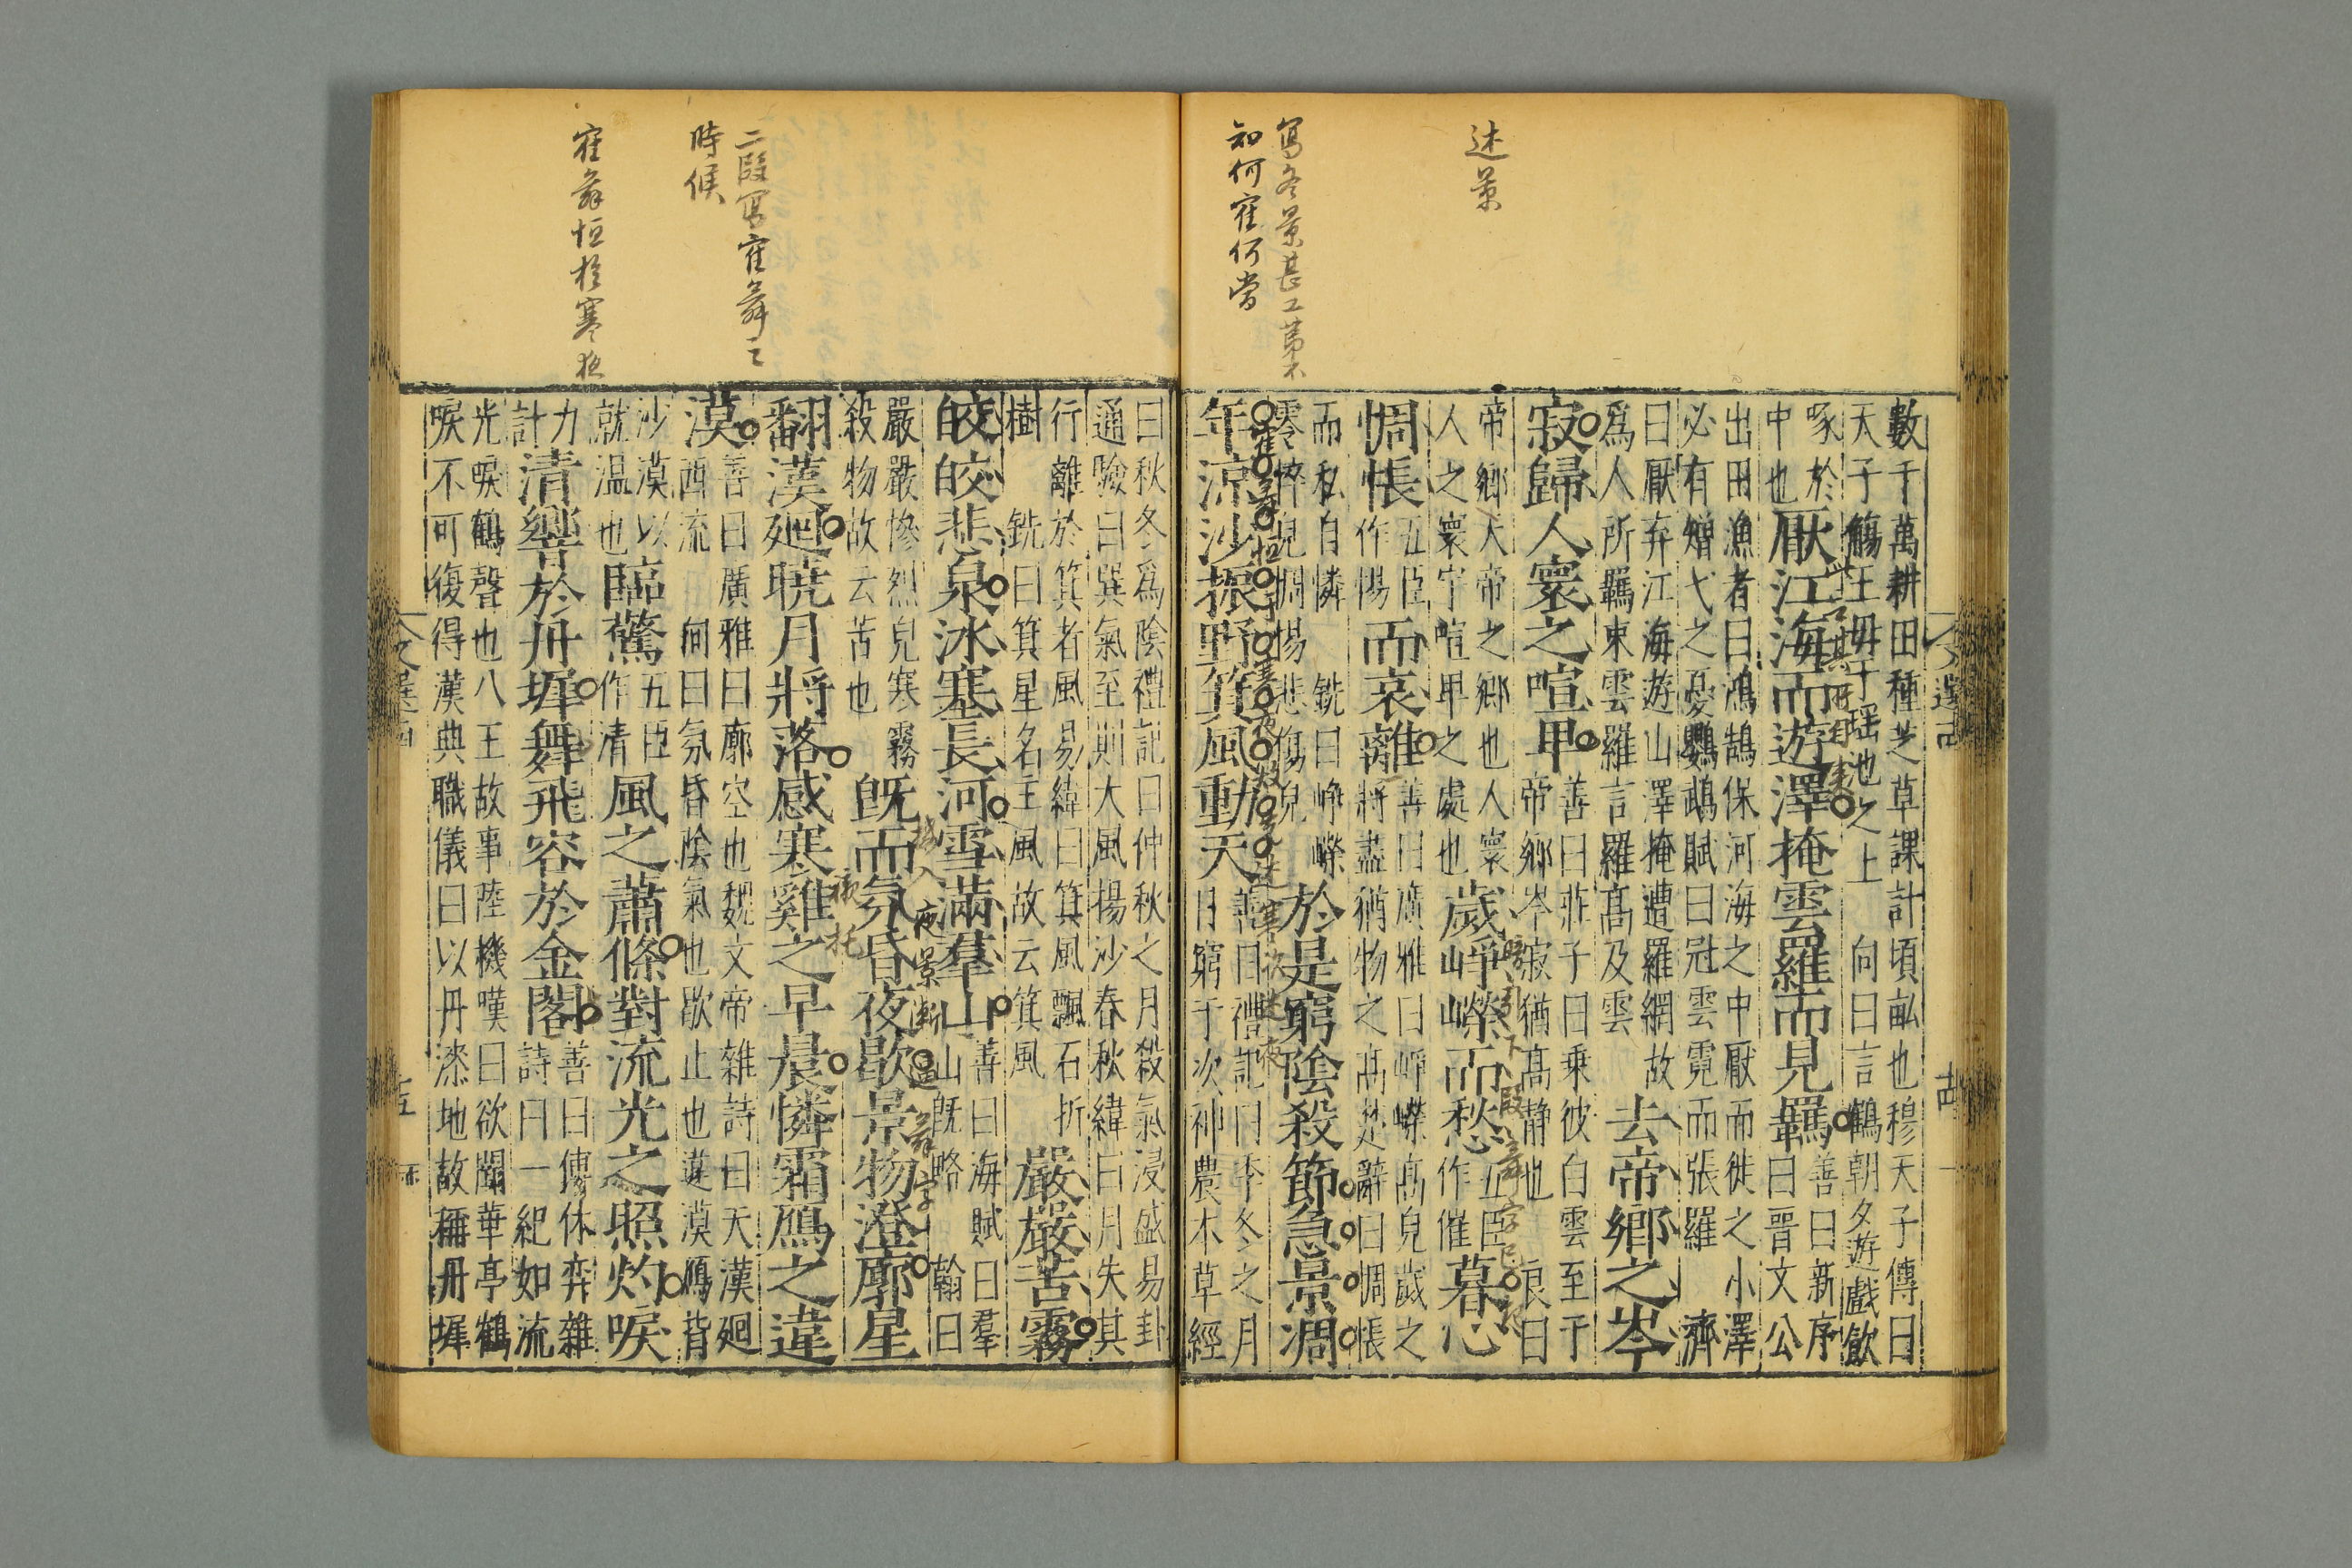 述景
寫冬景甚工第不
知何隺何當
數千萬耕田種芝草課計頃畝也穆天子傳曰
天子觴王母于瑤池之上　向曰言鶴朝夕遊戲飲
啄於
中也
厭江海而遊澤掩雲羅而見羈
善曰新序
曰晋文公
出田漁者曰鴻鵠保河海之中厭而徙之小澤
必有矰弋之憂鸚鵡賦曰冠雲霓而張羅　濟
曰厭弃江海遊山澤掩遭羅網故
爲人所羈束雲羅言羅髙及雲
去帝鄉之岑
寂歸人寰之喧卑
善曰莊子曰乗彼白雲至于
帝鄉岑寂猶髙静也　良曰
帝鄉天帝之鄉也人寰
人之寰宇喧卑之處也
歲崢嶸而愁
五臣
作催
暮心
惆悵
五臣
作惕
而哀離
善曰廣雅曰崢嶸髙皃歲之
將盡猶物之髙楚辭曰惆悵
而私自憐　銑曰崢嶸
零悴皃惆惕悲傷皃
於是窮陰殺節急景凋
年涼沙振野箕風動天
善曰禮記曰季冬之月
日窮于次神農本草經
曰秋冬爲陰禮記曰仲秋之月殺氣浸盛易卦
通驗曰巽氣至則大風揚沙春秋緯曰月失其
行離於箕者風易緯曰箕風飄石折
樹　銑曰箕星名主風故云箕風
嚴嚴苦霧
皎皎悲泉冰塞長河雪滿羣山
善曰海賦曰羣
山既略　翰曰
嚴嚴慘烈皃寒霧
殺物故云苦也
既而氛昏夜歇景物澄廓星
翻漢廻曉月將落感寒雞之早晨憐霜鴈之違
漠
善曰廣雅曰廓空也魏文帝雜詩曰天漢廻
西流　向曰氛昏陰氣也歇止也違漠鴈背
沙漠以
就温也
臨驚
五臣
作清
風之蕭條對流光之照灼唳
清響於丹墀舞飛容於金閣
善曰傅休弈雜
詩曰一紀如流
光唳鶴聲也八王故事陸機嘆曰欲聞華亭鶴
唳不可復得漢典職儀曰以丹漆地故稱丹墀
二段寫隺舞之
時候
隺舞恒於寒夜